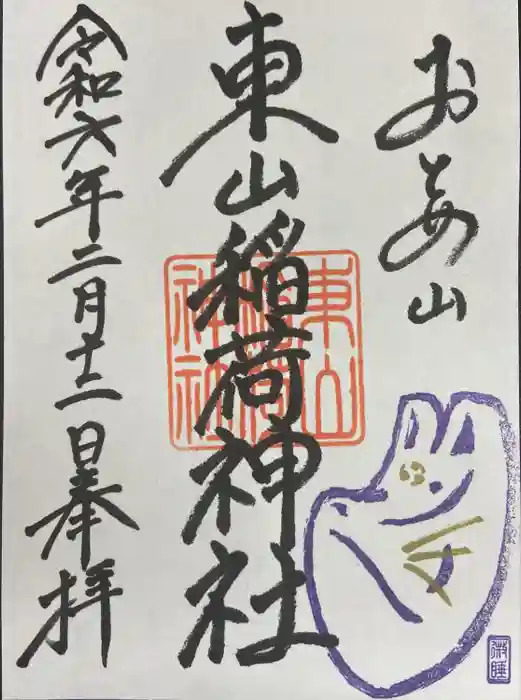 おとめ山
東山稲荷神社
令和六年二月十二日奉拝
東山
稲荷
神社